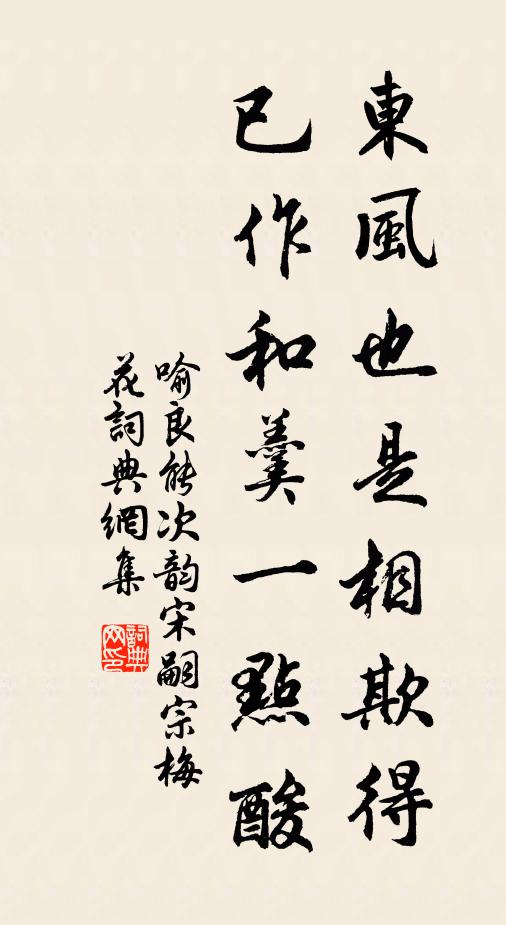 東風也是相欺得
已作和羹一點酸
喻良能次韵宋嗣宗梅
花詞典網集
詞典
网印